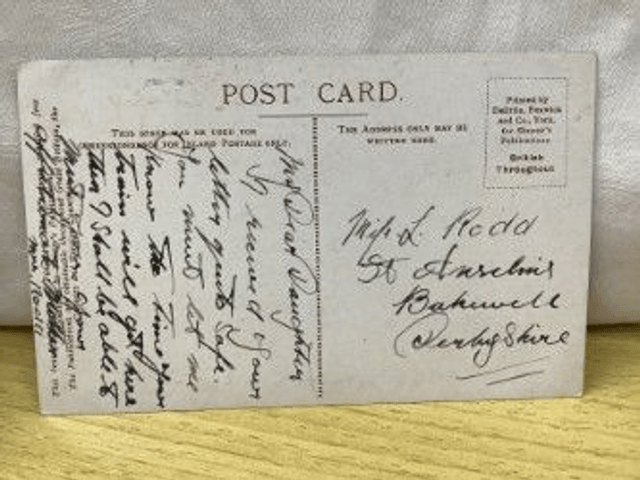 POST CARD.
THIS SPACE MAY BE USED FOR
CORRESPONDENCE FOR INLAND POSTAGE ONLY.
THE ADDRESS ONLY MAY BE
WRITTEN HERE.
Printed by
and Co., York,
Publications
British
Throughout
My Dear Daughter
I received your
letter quite safe.
You must let me
know the time your
train will get here
then I shall be able to
meet
Affectionate Mother
Miss L. Rodd
St Anselms
Bakewell
Derbyshire